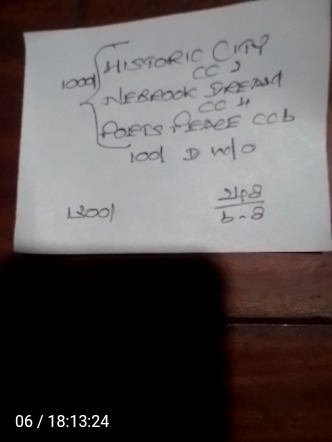 1000/ HISTORIC CITY
CC 2
NEBROOK DREAM
CC 4
POETS PEACE CC6
100/ D W/O
1200/
24-8
6-8
06 / 18:13:24